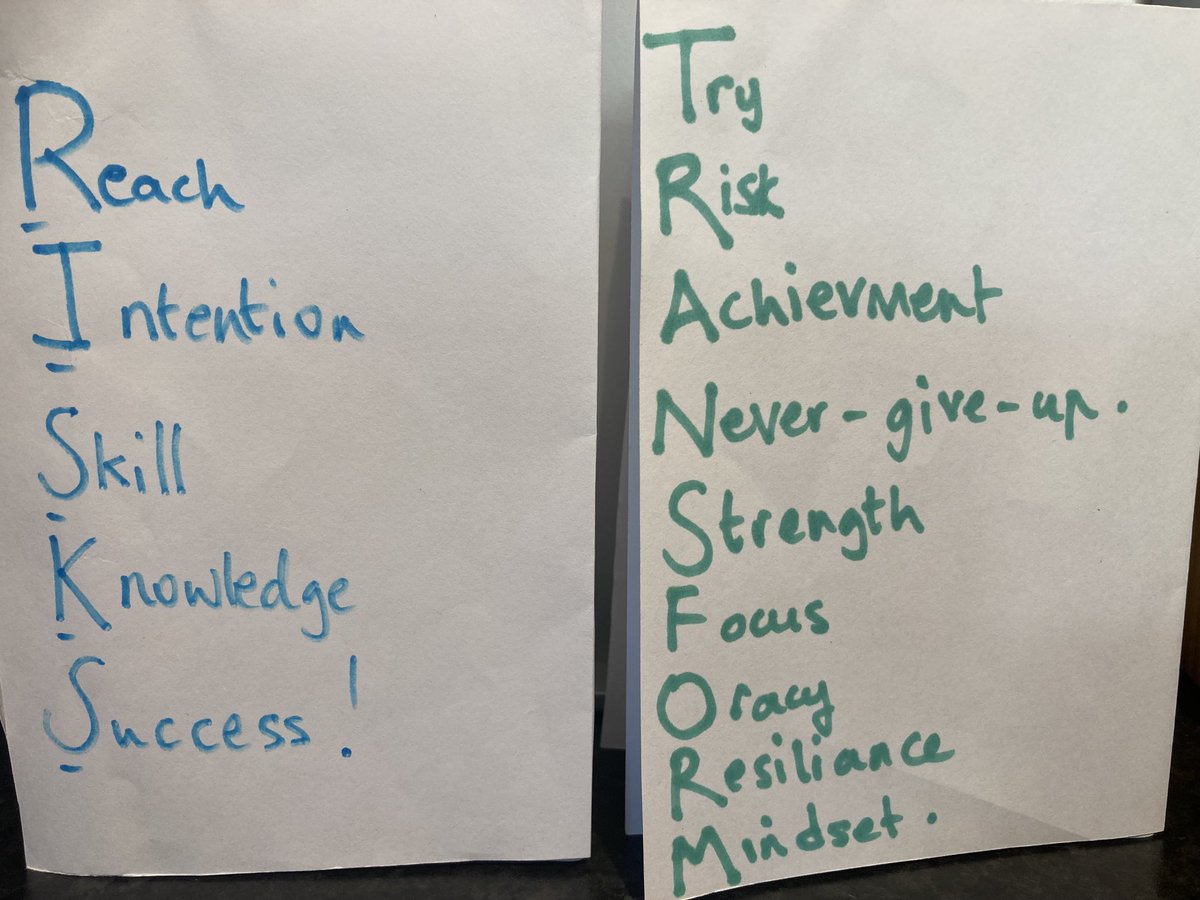 Reach
Intention
Skill
Knowledge
Success!
Try
Risk
Achievment
Never-give-up.
Strength
Focus
Oracy
Resiliance
Mindset.